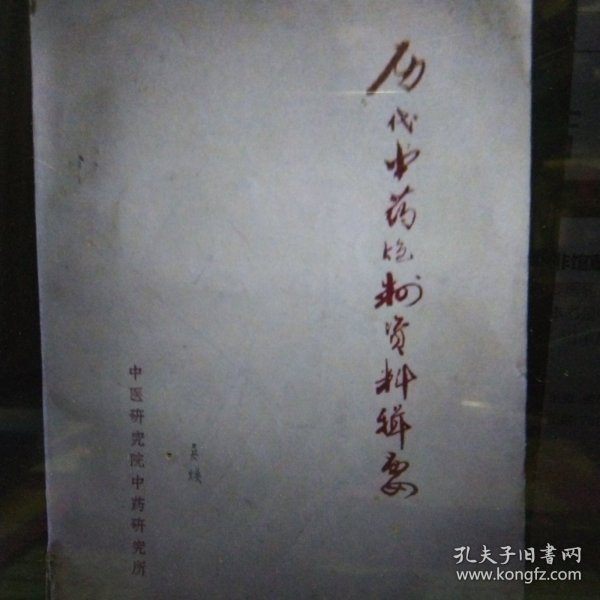 历代中药炮制资料辑要
中医研究院中药研究所
孔夫子旧书网
www.kongfz.com